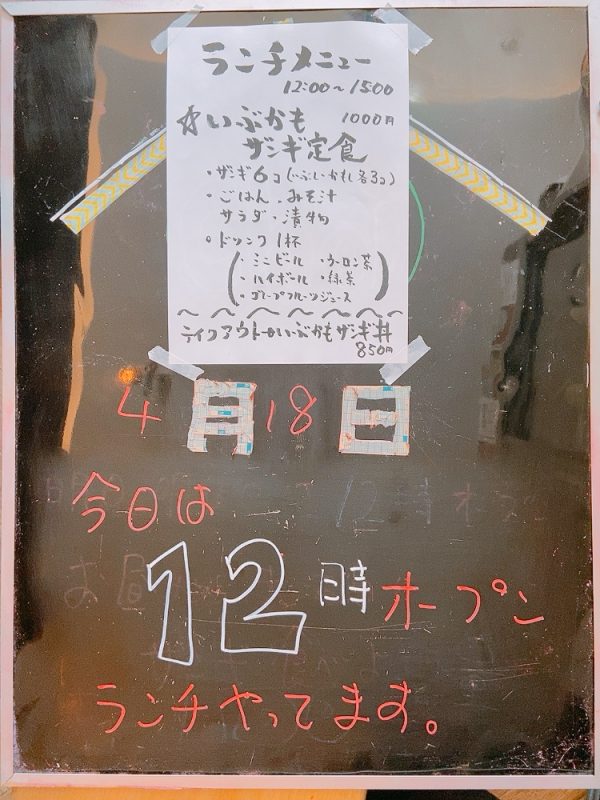 ランチメニュー
12:00〜1500
☆いぶかも 1000円
ザンギ定食
・ザンギ6コ(いぶしかもし各3コ)
・ごはん・みそ汁
サラダ・漬物
○ドリンク1杯
(・ミニビール ・ウーロン茶
・ハイボール ・緑茶
・グレープフルーツジュース)
テイクアウト いぶかもザンギ丼
850円
4月18日
今日は
12時オープン
ランチやってます。